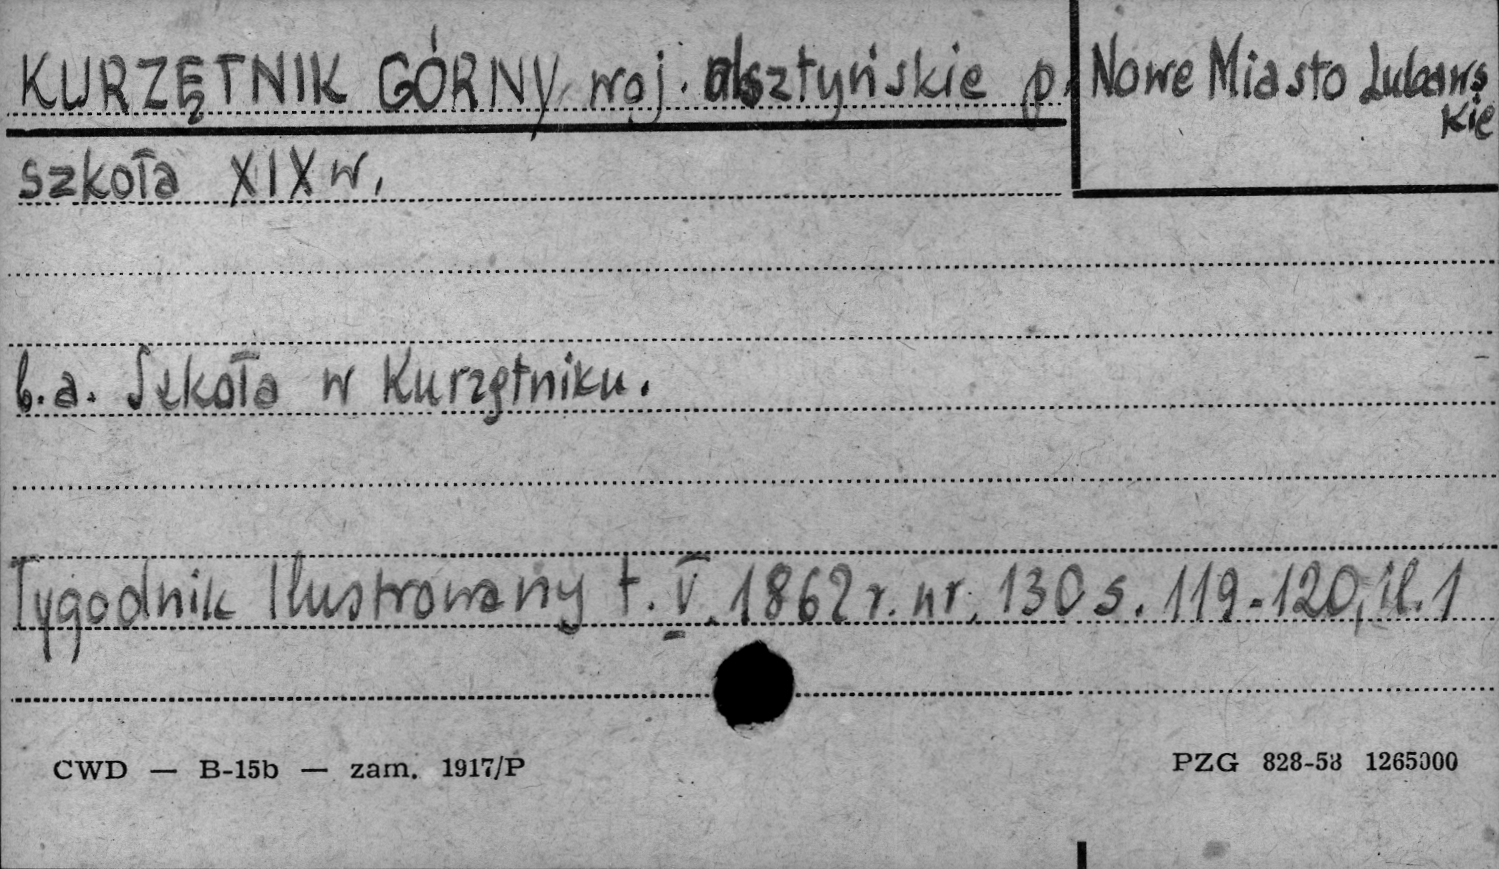 KURZĘTNIK GÓRNY, woj. olsztyńskie p. Nowe Miasto Lubaws
kie
szkoła XIX w.
b.a. Szkoła w Kurzętniku.
Tygodnik Ilustrowany t. V. 1862 r. nr. 130 s. 119-120, il. 1
CWD — B-15b — zam. 1917/P
PZG 828-58 1265000